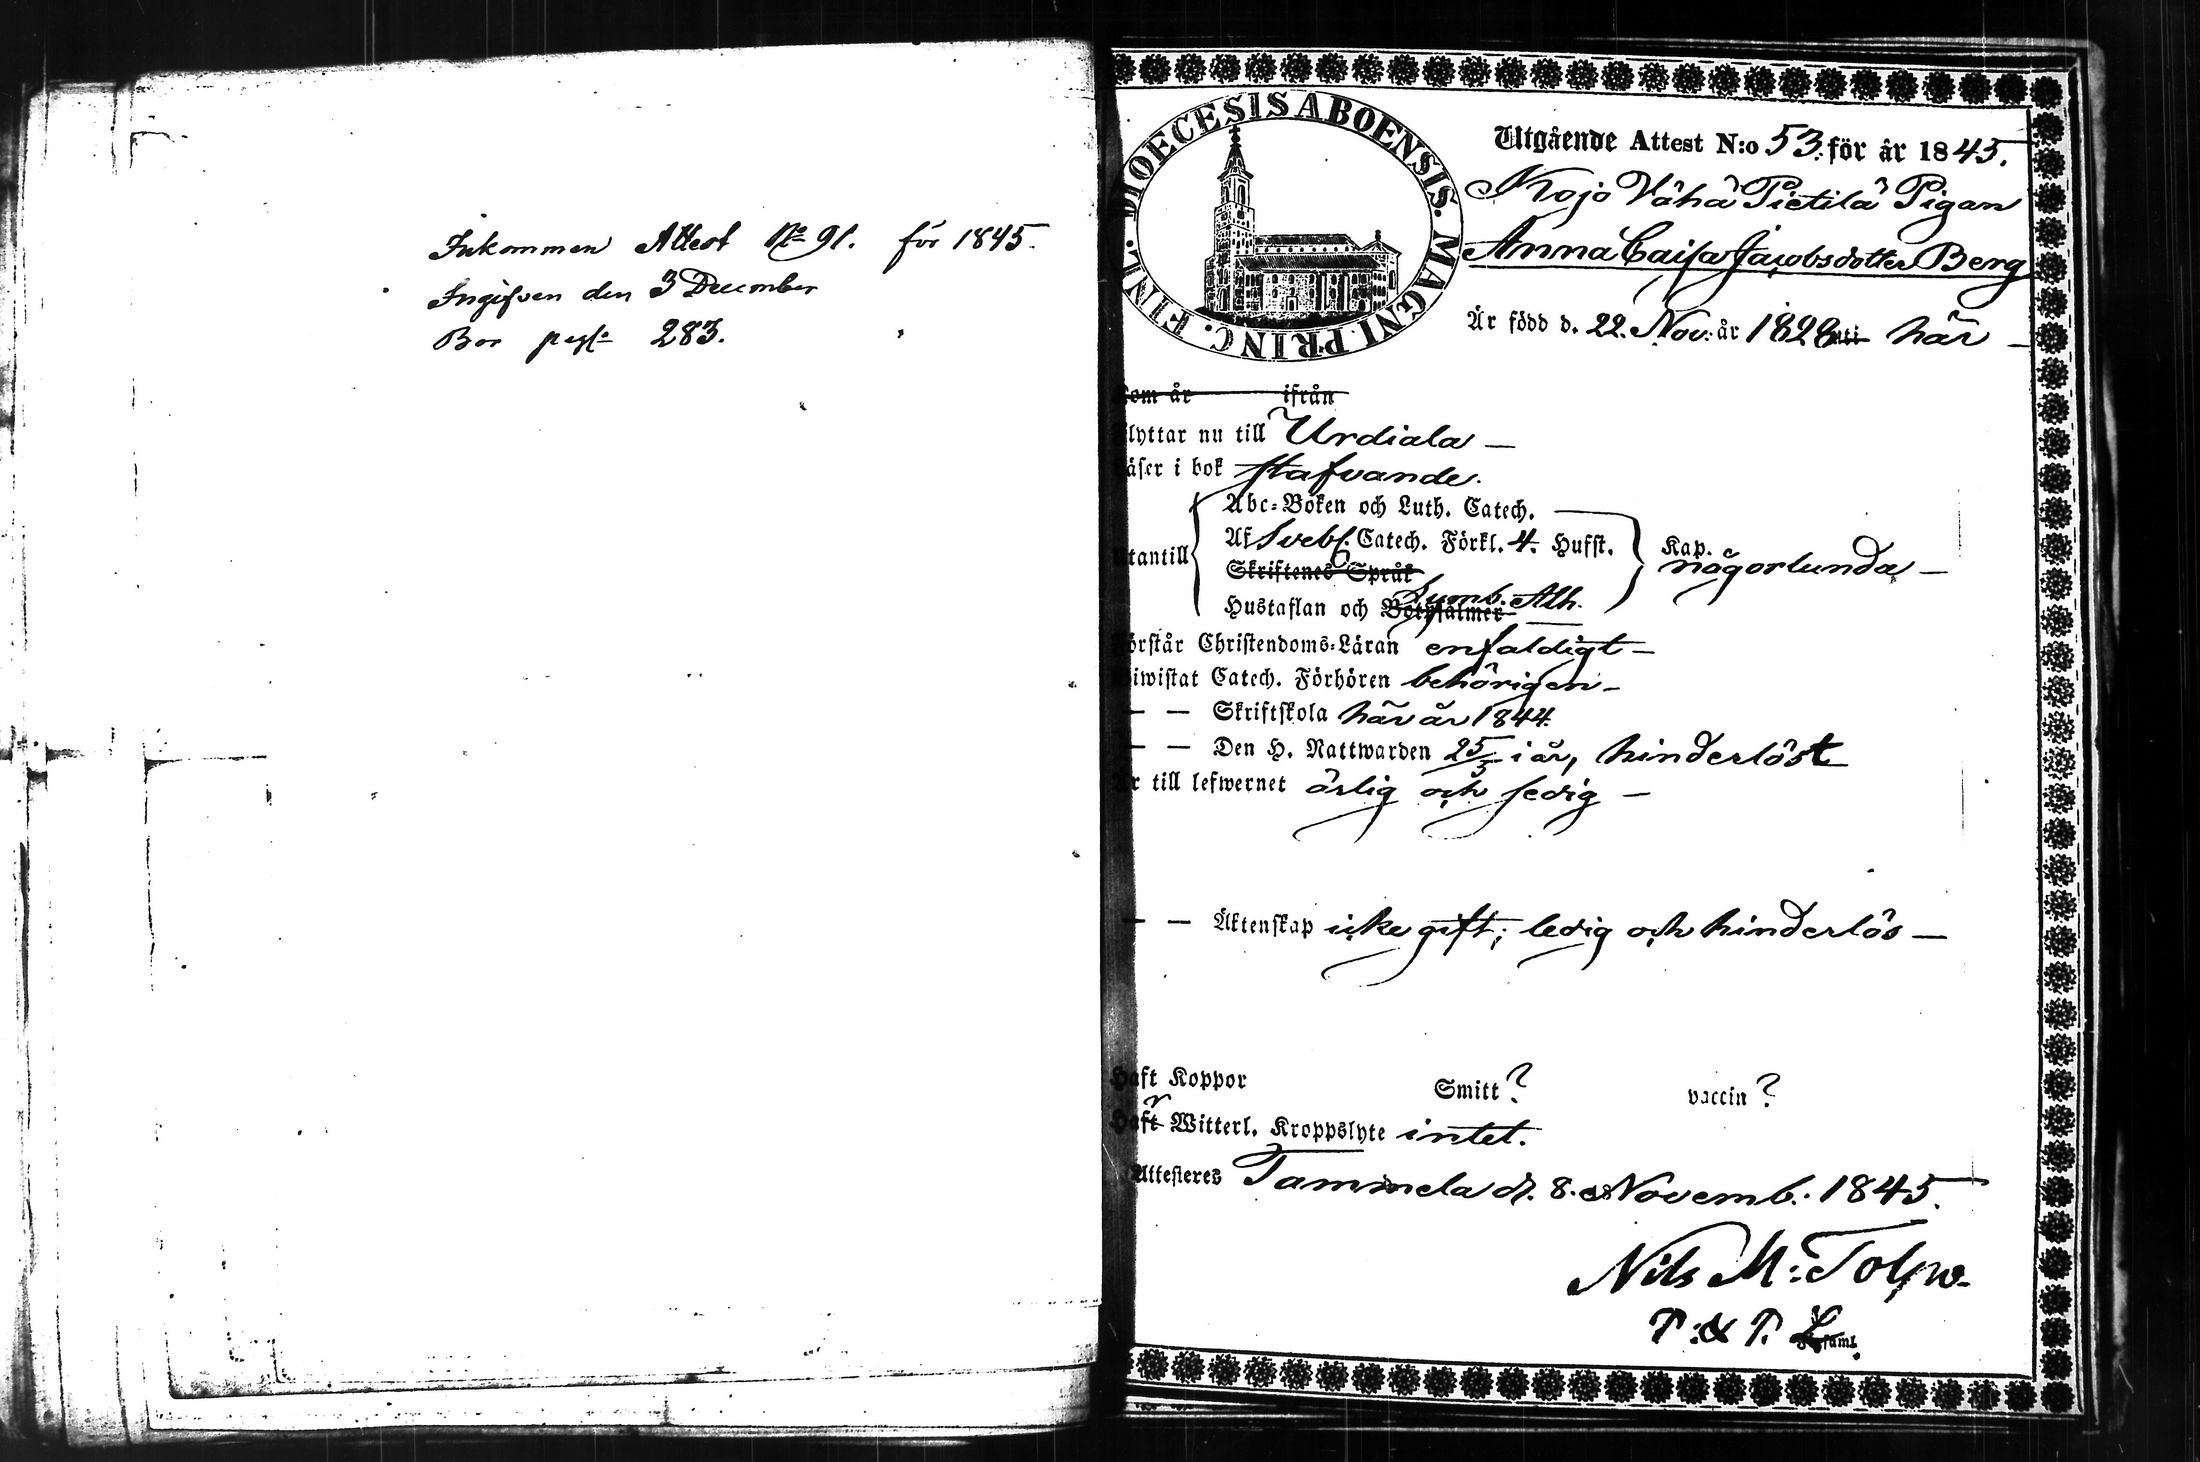 Inkommen Attest No 91. för 1845.
Ingifven den 3 December
Bor pag: 283.
DIOECESIS ABOENSIS. MAGNI. PRINC. FINL.
Utgående Attest N:o 53 för år 1845.
Kojo Vähä Pietilä Pigan
Anna Caisa Jacobsdotter Berg
Är född d. 22. Nov: år 1828 uti här —
Kom år ifrån
Flyttar nu till Urdiala —
Läser i bok stafvande.
Utantill
Abc-Boken och Luth. Catech.
Af Svebl. Catech. Förkl. 4. Hufst. Kap.
någorlunda —
Skriftenes Språk
Symb. Ath.
Hustaflan och Botpsalmer
Förstår Christendoms-Läran enfaldigt —
Biwistat Catech. Förhören behörigen —
— — Skriftskola här år 1844.
— — Den H. Nattwarden 25/5 i år, hinderlöst
Är till lefwernet ärlig och sedig —
— — Äktenskap icke gift; ledig och hinderlös —
Haft Koppor Smitt? vaccin?
Haft Witterl. Kroppslyte intet.
Attesteres Tammela d. 8. Novemb. 1845.
Nils M:
P: & P.